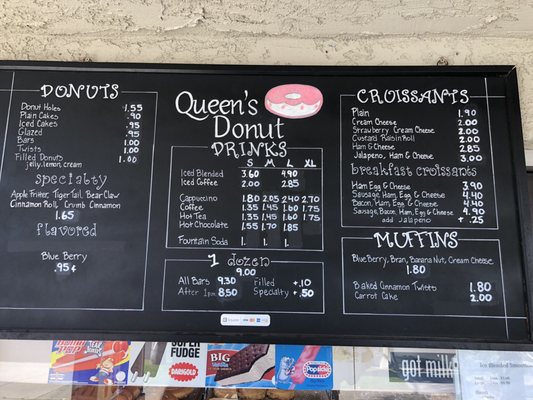 Donuts
Donut Holes 1.55
Plain Cakes .90
Iced Cakes .95
Glazed .95
Bars 1.00
Twists 1.00
Filled Donuts 1.00
jelly, lemon, cream
Specialty
Apple Fritter, Tiger Tail, Bear Claw
Cinnamon Roll, Crumb Cinnamon
1.65
flavored
Blue Berry
.95¢
Queen's
Donut
DRINKS
S M L XL
Iced Blended 3.60 4.90
Iced Coffee 2.00 2.85
Cappucino 1.80 2.05 2.40 2.70
Coffee 1.35 1.45 1.60 1.75
Hot Tea 1.35 1.45 1.60 1.75
Hot Chocolate 1.55 1.70 1.85
Fountain Soda 1. 1. 1.
1 dozen
9.00
All Bars 9.30 Filled +.10
After 1pm 8.50 Specialty +.50
Croissants
Plain 1.90
Cream Cheese 2.00
Strawberry Cream Cheese 2.00
Custard Raisin Roll 2.00
Ham & Cheese 2.85
Jalapeno, Ham & Cheese 3.00
breakfast croissants
Ham Egg & Cheese 3.90
Sausage, Ham, Egg & Cheese 4.40
Bacon, Ham, Egg & Cheese 4.40
Sausage, Bacon, Ham, Egg & Cheese 4.90
add Jalapeño +.25
Muffins
Blue Berry, Bran, Banana Nut, Cream Cheese
1.80
Baked Cinnamon Twists 1.80
Carrot Cake 2.00
SUPER
FUDGE
DARIGOLD
BIG
Popsicle
got milk
Iced Blended Smoothie